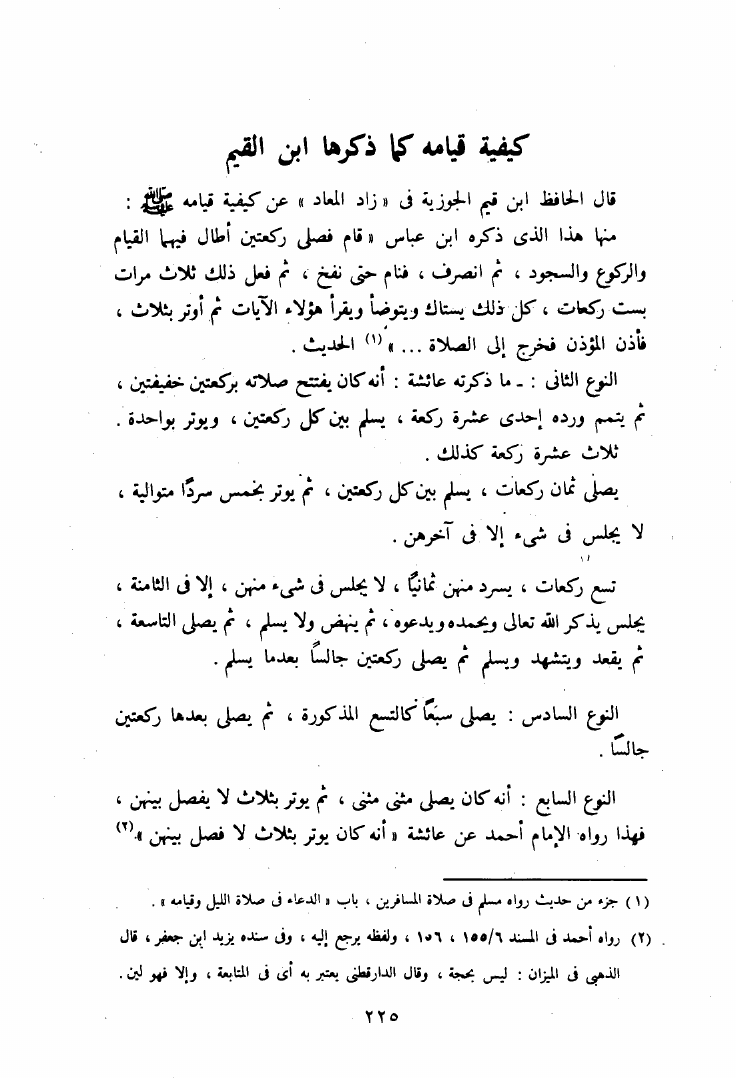 كيفية قيامه كما ذكرها ابن القيم
قال الحافظ ابن قيم الجوزية فى « زاد المعاد » عن كيفية قيامه ﷺ :
منها هذا الذى ذكره ابن عباس « قام فصلى ركعتين أطال فيهما القيام
والركوع والسجود ، ثم انصرف ، فنام حتى نفخ ، ثم فعل ذلك ثلاث مرات
بست ركعات ، كل ذلك يستاك ويتوضأ ويقرأ هؤلاء الآيات ثم أوتر بثلاث ،
فأذن المؤذن فخرج إلى الصلاة ... » (١) الحديث .
النوع الثانى : ـ ما ذكرته عائشة : أنه كان يفتتح صلاته بركعتين خفيفتين ،
ثم يتمم ورده إحدى عشرة ركعة ، يسلم بين كل ركعتين ، ويوتر بواحدة .
ثلاث عشرة ركعة كذلك .
يصلى ثمان ركعات ، يسلم بين كل ركعتين ، ثم يوتر بخمس سردًا متوالية ،
لا يجلس فى شىء إلا فى آخرهن .
تسع ركعات ، يسرد منهن ثمانيًا ، لا يجلس فى شىء منهن ، إلا فى الثامنة ،
يجلس يذكر الله تعالى ويحمده ويدعوه ، ثم ينهض ولا يسلم ، ثم يصلى التاسعة ،
ثم يقعد ويتشهد ويسلم ثم يصلى ركعتين جالسًا بعدما يسلم .
النوع السادس : يصلى سبعًا كالتسع المذكورة ، ثم يصلى بعدها ركعتين
جالسًا .
النوع السابع : أنه كان يصلى مثنى مثنى ، ثم يوتر بثلاث لا يفصل بينهن ،
فهذا رواه الإمام أحمد عن عائشة « أنه كان يوتر بثلاث لا فصل بينهن ».(٢)
(١) جزء من حديث رواه مسلم فى صلاة المسافرين ، باب « الدعاء فى صلاة الليل وقيامه » .
(٢) رواه أحمد فى المسند ١٥٥/٦ ، ١٥٦ ، ولفظه يرجع إليه ، وفى سنده يزيد ابن جعفر ، قال
الذهبى فى الميزان : ليس بحجة ، وقال الدارقطنى يعتبر به أى فى المتابعة ، وإلا فهو لين .
٢٢٥